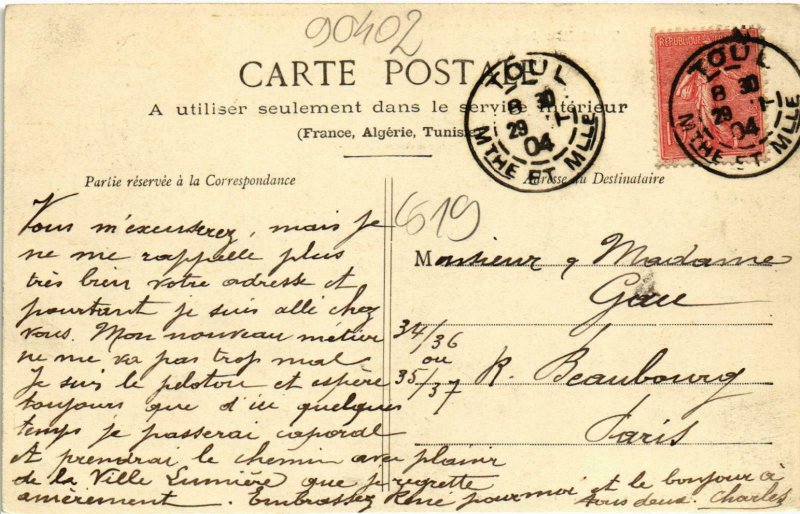 90402
CARTE POSTALE
A utiliser seulement dans le service intérieur
(France, Algérie, Tunisie)
RÉPUBLIQUE
TOUL
8 30
29 T
04
MTHE ET MLLE
TOUL
8 30
29 T
04
MTHE ET MLLE
Partie réservée à la Correspondance
Adresse du Destinataire
619
Vous m'excuserez, mais je
ne me rappelle plus
très bien votre adresse et
pourtant je suis allé chez
vous. Mon nouveau métier
ne me va pas trop mal
Je suis le peloton et espère
toujours que d'ici quelques
temps je passerai caporal
et prendrai le chemin avec plaisir
de la Ville Lumière que je regrette
amèrement. Embrassez René pour moi et le bonjour à
tous deux. Charles
Monsieur & Madame
Gau
34/36
ou
35/37
R. Beaubourg
Paris